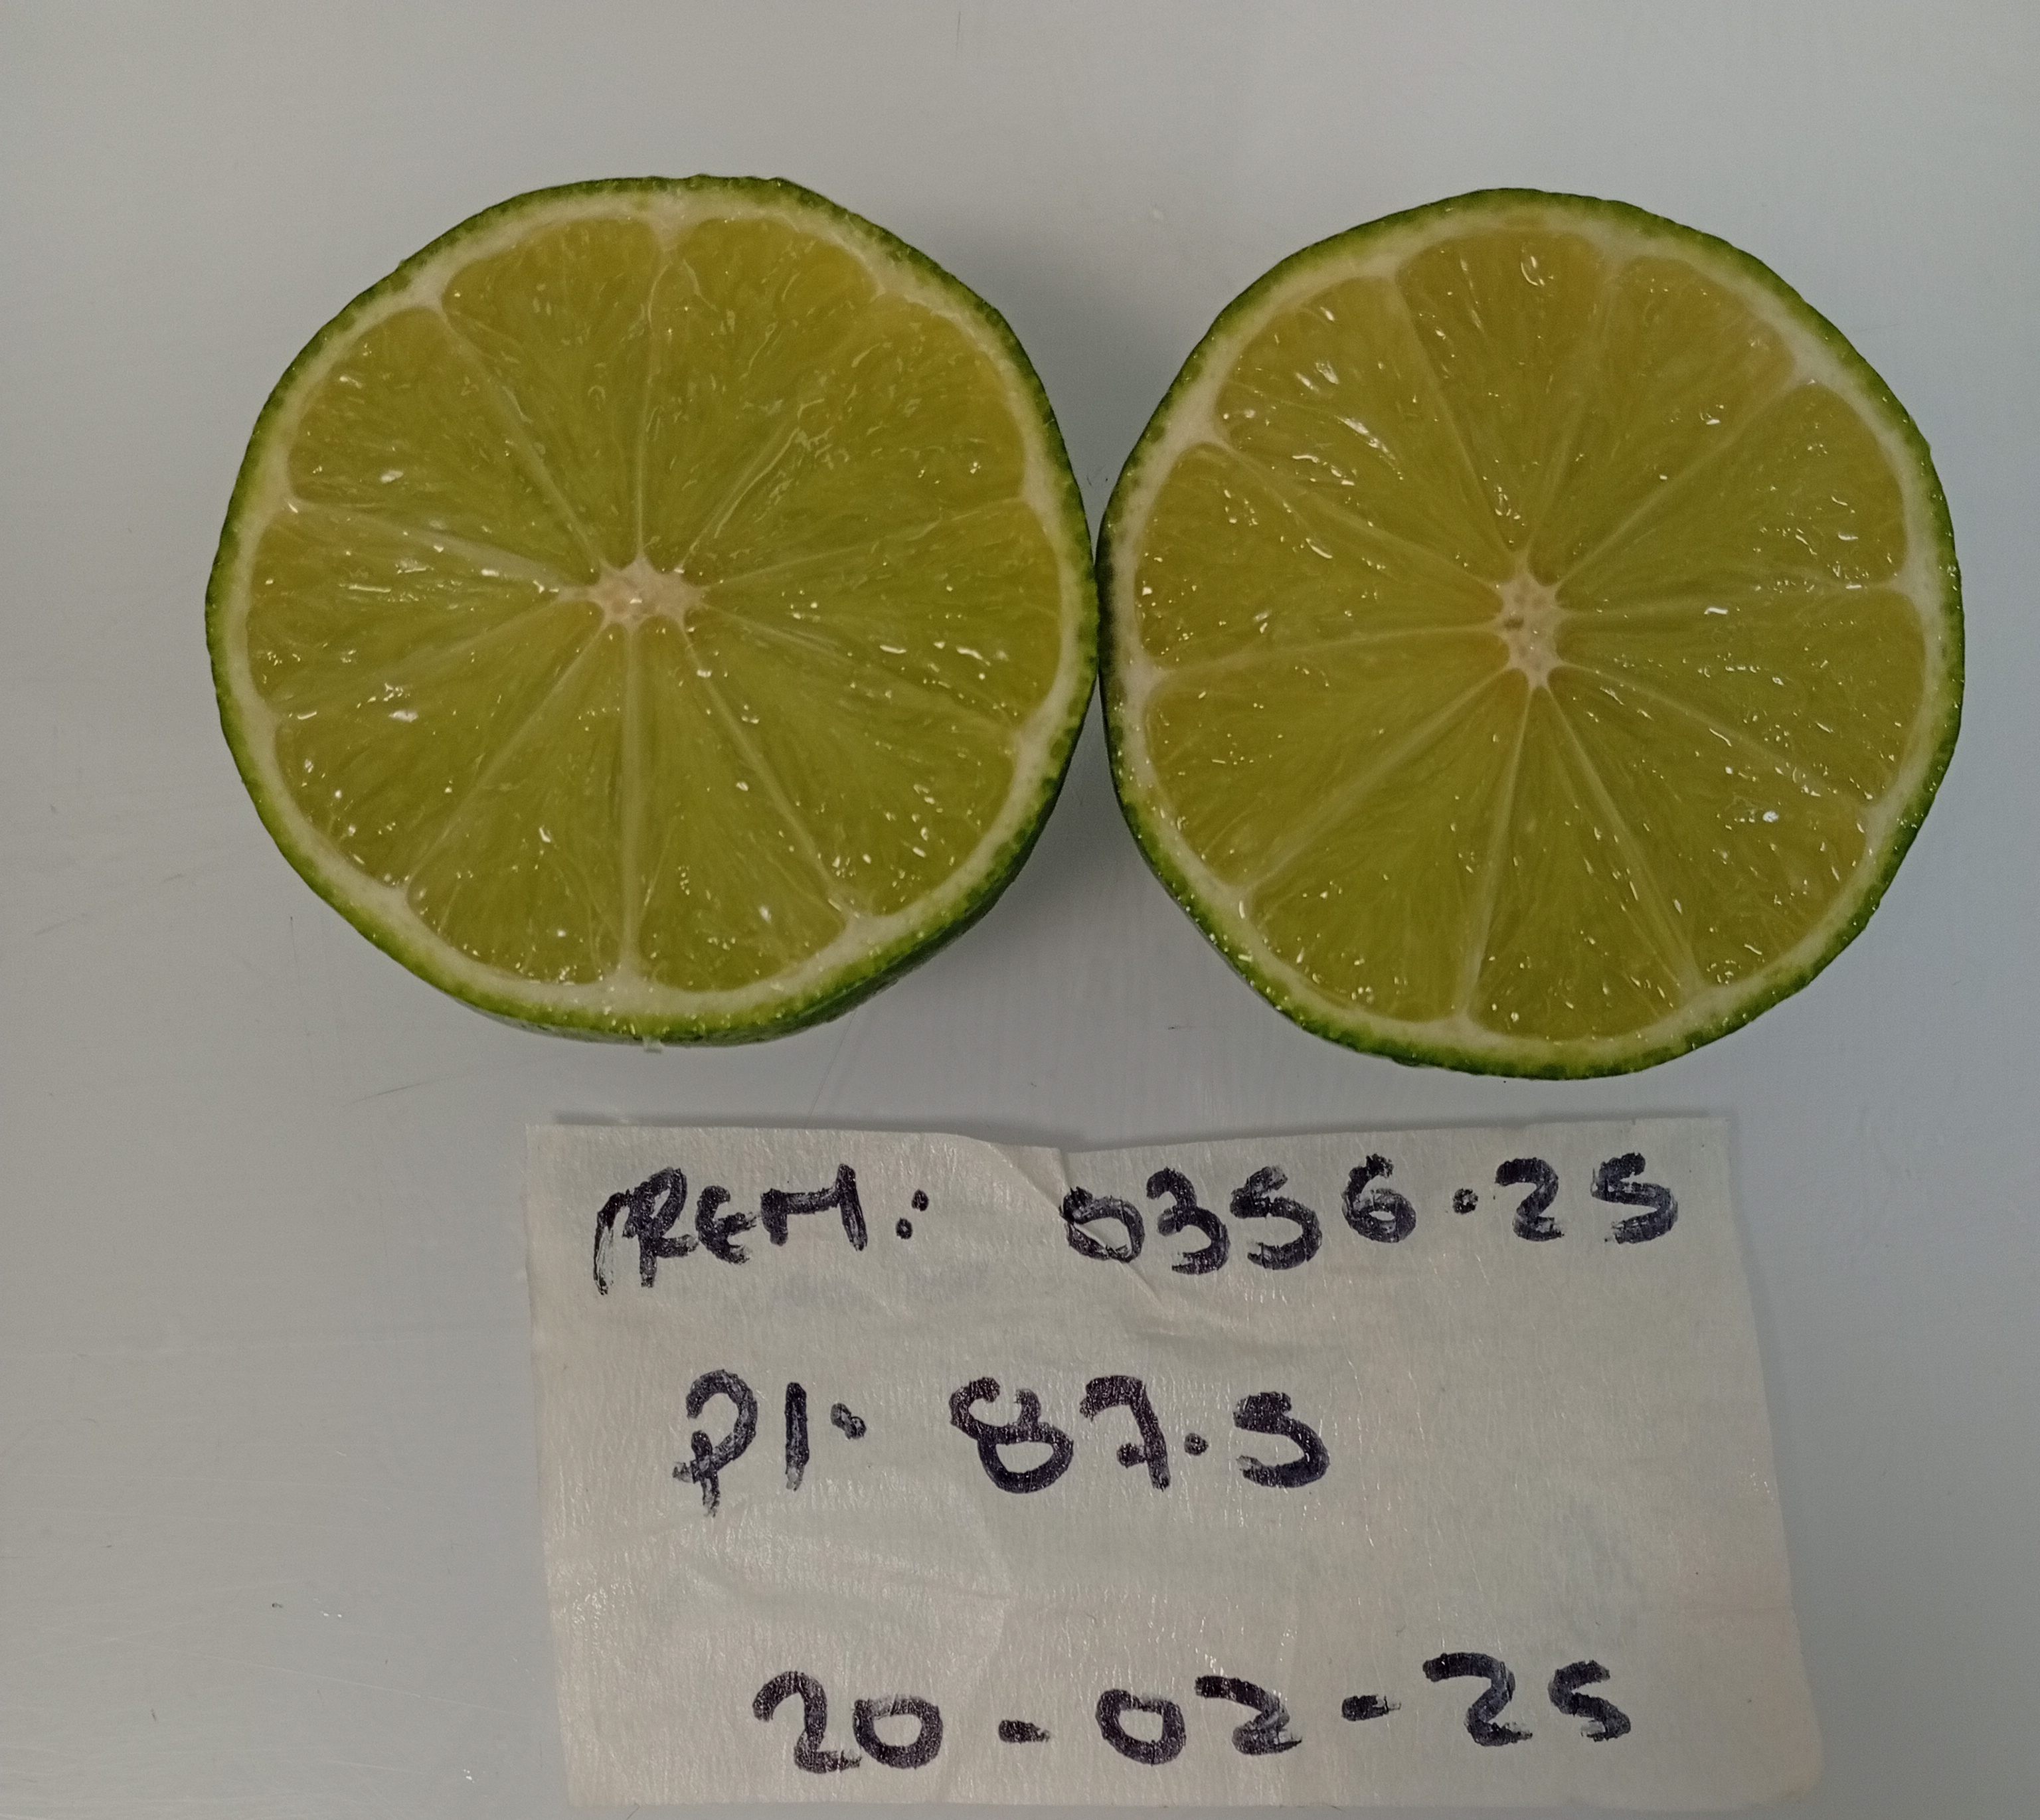 PREM: 0356.25
PI: 87.5
20-02-25